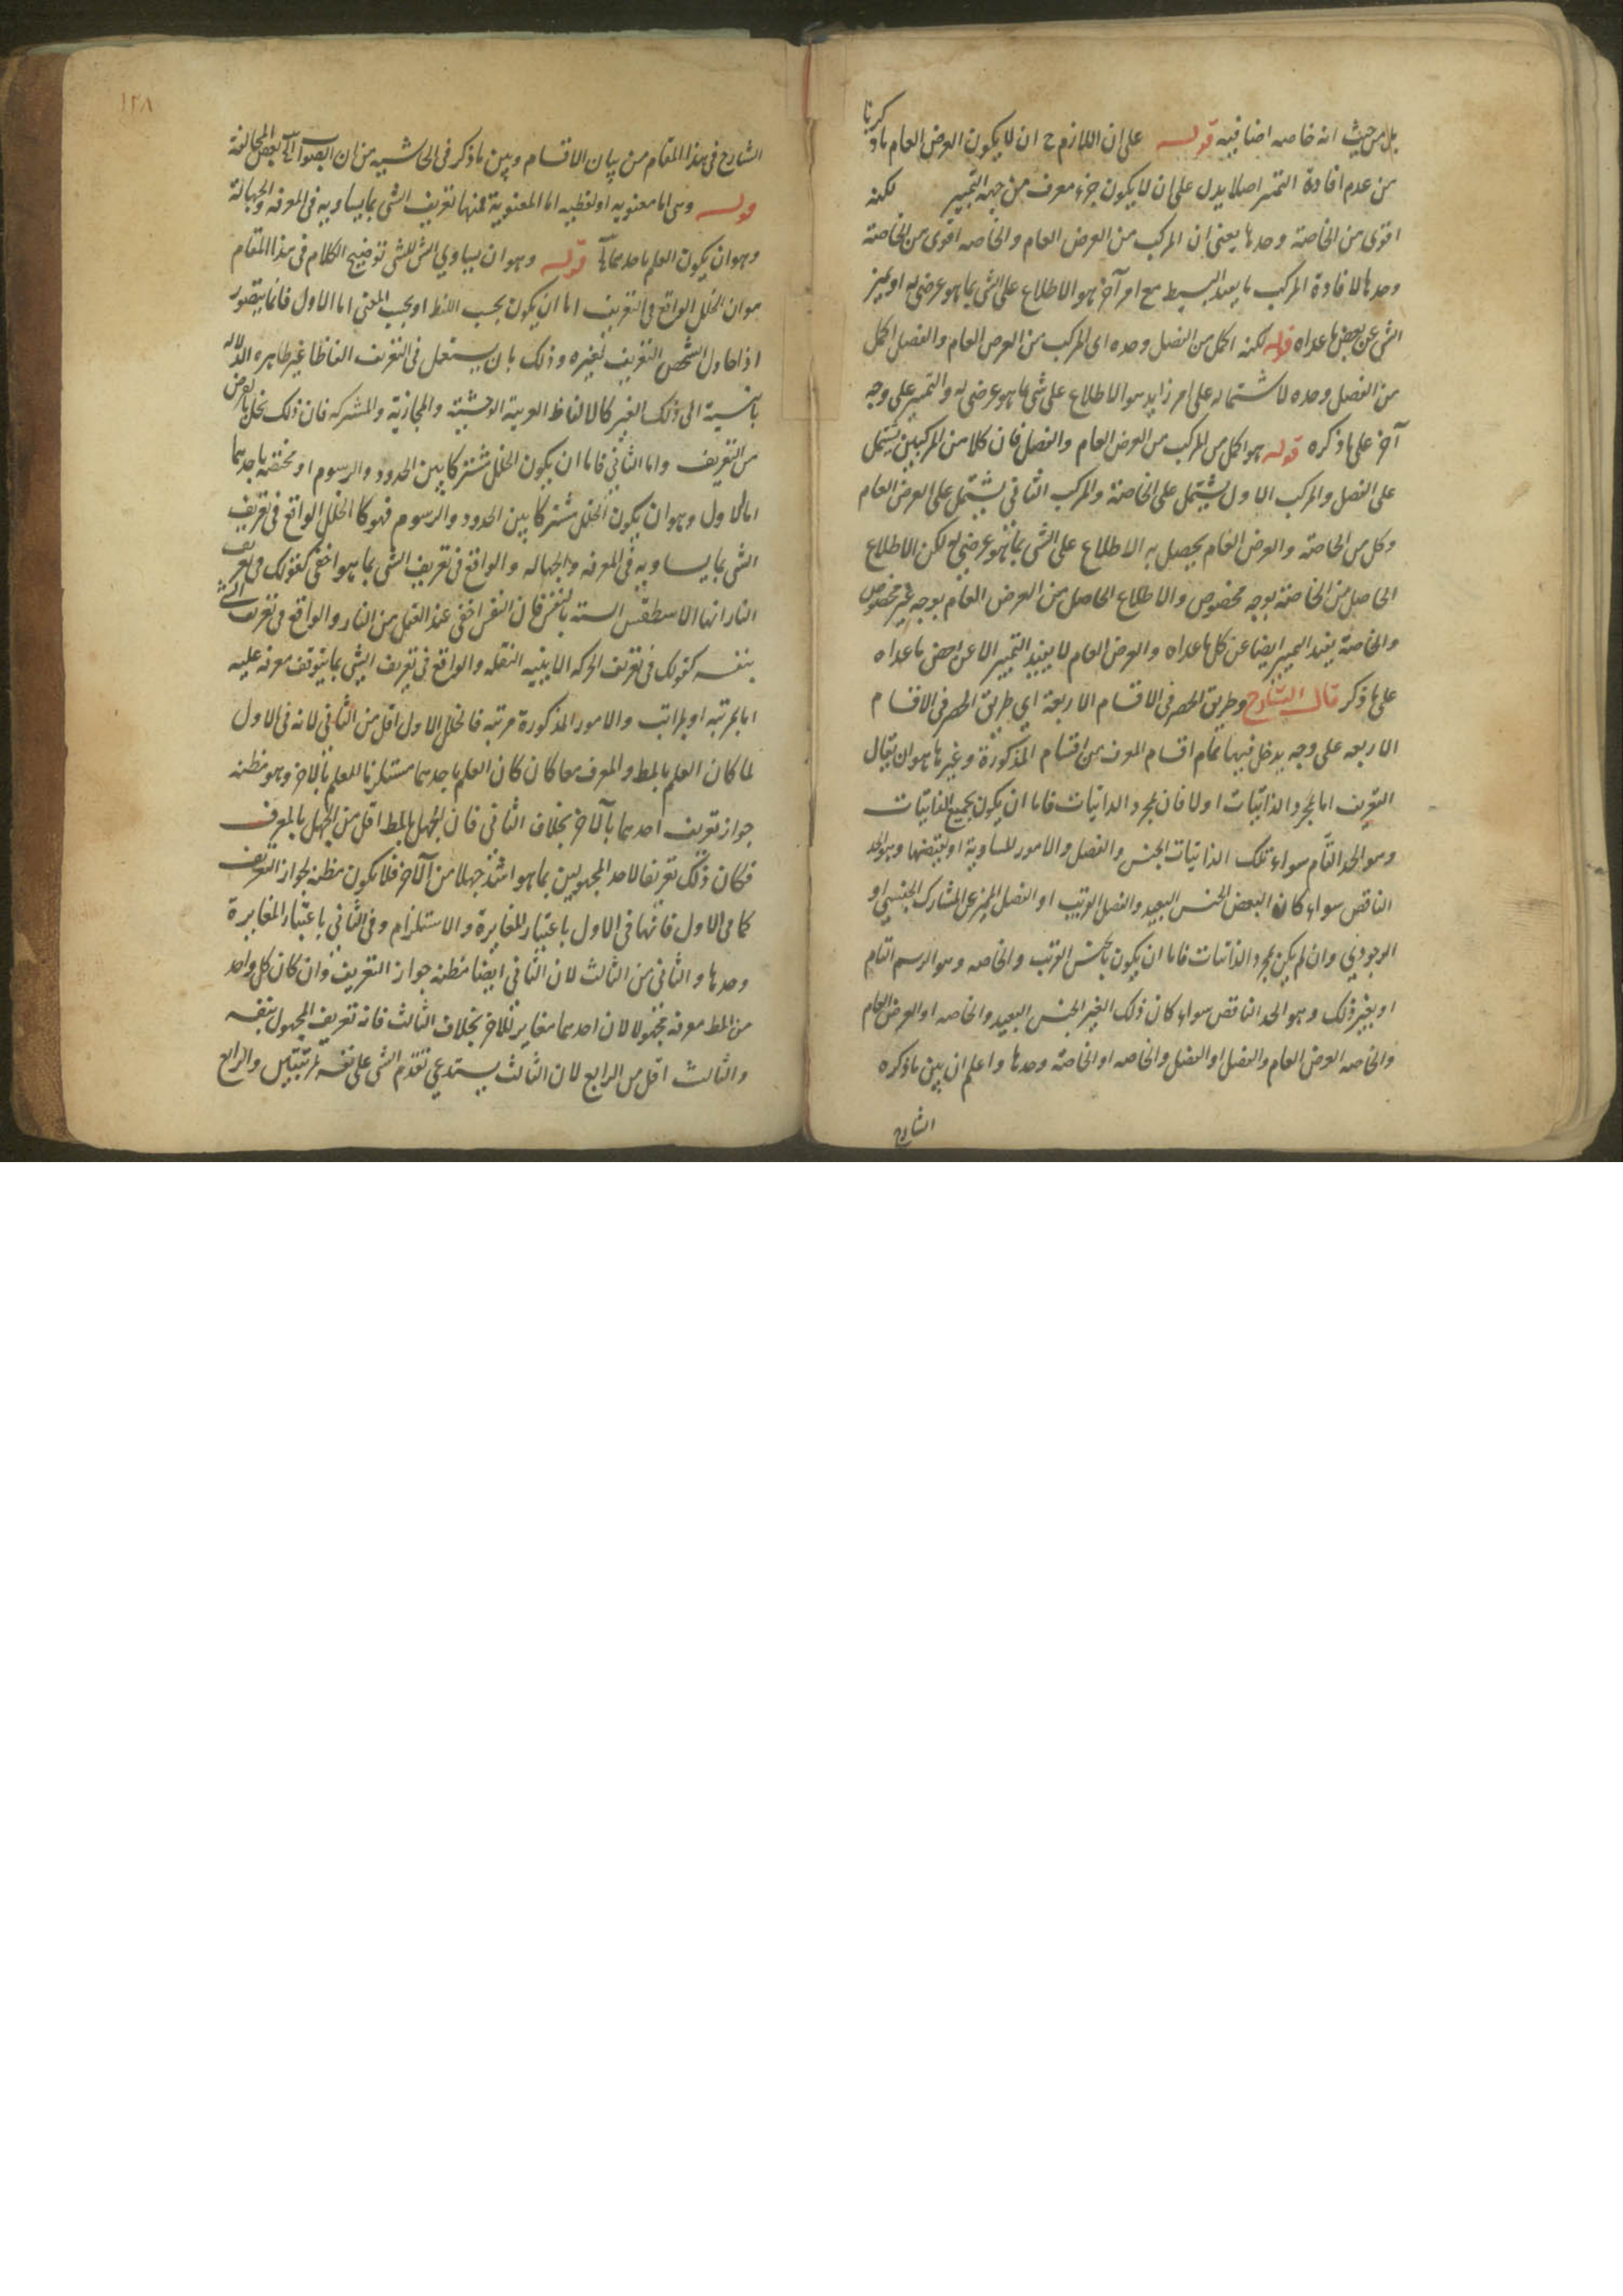 بل من حيث انه خاصه اضافيه قوله على ان اللازم ح ان لا يكون العرض العام ماذكرنا
من عدم افادة التميز اصلا يدل على ان لا يكون جزء معرف من جهه التميز لكنه
اقوى من الخاصة وحدها يعنى ان المركب من العرض العام والخاصه اقوى من الخاصة
وحدها لافادة المركب ما يفيد البسيط مع امر آخر هو الاطلاع على الشى بما هو عرضى له او تميز
الشى عن بعض ما عداه قوله لكنه اكمل من الفصل وحده اى المركب من العرض العام والفصل اكمل
من الفصل وحده لاشتماله على امر زايد هو الاطلاع على شى ما هو عرضى له والتميز على وجه
آخر على ما ذكره قوله هو اكمل من المركب من العرض العام والفصل فان كلا من المركبين يشتمل
على الفصل والمركب الاول يشتمل على الخاصة والمركب الثانى يشتمل على العرض العام
وكل من الخاصة والعرض العام يحصل به الاطلاع على الشى بما هو عرضى له لكن الاطلاع
الحاصل من الخاصة بوجه مخصوص والاطلاع الحاصل من العرض العام بوجه غير مخصوص
والخاصة يفيد التميز ايضا عن كل ما عداه والعرض العام لا يفيد التميز الا عن بعض ما عداه
على ما ذكر قال الشارح وطريق الحصر فى الاقسام الاربعة اى طريق الحصر فى الاقسام
الاربعه على وجه يدخل فيها تمام اقسام المعرف من اقسام المذكورة وغيرها هو ان يقال
التعريف اما بمجرد الذاتيات اولا فان بمجرد الذاتيات فاما ان يكون بجميع الذاتيات
وهو الحد التام سواء تلك الذاتيات الجنس والفصل والامور المساوية او ببعضها وهو الحد
الناقص سواء كان البعض الجنس البعيد والفصل القريب او الفصل المميز عن المشارك الجنسى او
الوجودى وان لم يكن بمجرد الذاتيات فاما ان يكون بالجنس القريب والخاصه وهو الرسم التام
او بغير ذلك وهو الحد الناقص سواء كان ذلك الغير الجنس البعيد والخاصه او العرض العام
والخاصه العرض العام والفصل او الفصل والخاصه او الخاصة وحدها واعلم ان بين ما ذكره
الشارح
١٢٨
الشارح فى هذا المقام من بيان الاقسام وبين ما ذكر فى الحاشيه من ان الصواب الى بعض المخالفة
قوله وهى اما معنويه او لفظيه اما المعنوية فمنها تعريف الشى بما يساويه فى المعرفه والجهالة
وهو ان يكون العلم باحدهما قوله وهو ان يساوى الشى للشى توضيح الكلام فى هذا المقام
هو ان الخلل الواقع فى التعريف اما ان يكون بحسب اللفظ او بحسب المعنى اما الاول فانما يتصور
اذا حاول الشخص التعريف لغيره وذلك بان يستعمل فى التعريف الفاظا غير ظاهره الدلاله
بالنسبة الى ذلك الغير كالالفاظ الغريبة الوحشية والمجازية والمشتركه فان ذلك يخل بالغرض
من التعريف واما الثانى فاما ان يكون الخلل مشتركا بين الحدود والرسوم او مختصه باحدهما
اما الاول وهو ان يكون الخلل مشتركا بين الحدود والرسوم فهو كالخلل الواقع فى تعريف
الشى بما يساويه فى المعرفه والجهاله والواقع فى تعريف الشى بما هو اخفى كقولك فى تعريف
النار انها الاسطقس الشبيه بالنفس فان النفس اخفى عند العقل من النار والواقع فى تعريف الشى
بنفسه كقولك فى تعريف الحركه الاينيه النقله والواقع فى تعريف الشى بما يتوقف معرفه عليه
اما بمرتبه او بمراتب والامور المذكورة مرتبه فالخلل الاول اقل من الثانى لانه فى الاول
لما كان العلم بالمط والمعرف معا كان كان العلم باحدهما مستلزما للعلم بالاخر وهو مظنه
جواز تعريف احدهما بالآخر بخلاف الثانى فان الجهل بالمط اقل من الجهل بالمعرف
فكان ذلك تعريفا لاحد المجهولين بما هو اشد جهلا من الآخر فلا يكون مظنه لجواز التعريف
كما فى الاول فانها فى الاول باعتبار المغايرة والاستلزام وفى الثانى باعتبار المغايرة
وحدها والثانى من الثالث لان الثانى ايضا مظنه جواز التعريف وان كان كل واحد
من المط معرفه مجهولا لان احدهما مغاير للاخر بخلاف الثالث فانه تعريف المجهول بنفسه
والثالث اقل من الرابع لان الثالث يستدعى تقدم الشى على نفسه بمرتبتين والرابع